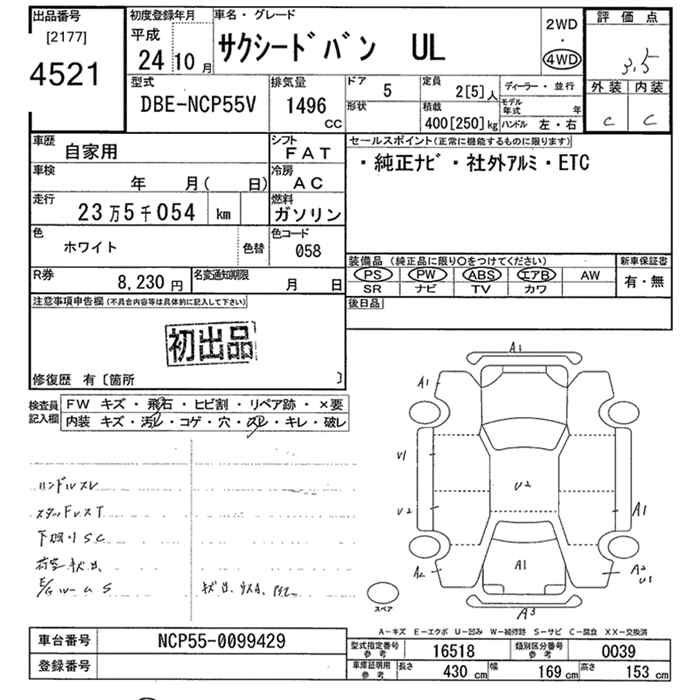 出品番号
[2177]
4521
初度登録年月
平成
24 10 月
車名・グレード
サクシードバン UL
2WD
・
4WD
評価点
3.5
外装 内装
C C
型式
DBE-NCP55V
排気量
1496
CC
ドア
5
形状
定員
2[5] 人
積載
400[250] kg
ディーラー・並行
モデル年式 年
ハンドル 左・右
車歴
自家用
シフト
FAT
車検
年 月( 日)
冷房
AC
走行
23万5千054 km
燃料
ガソリン
色
ホワイト
色替
色コード
058
R券
8,230 円
名変通知期限
月 日
セールスポイント(正常に機能するものに限ります)
・純正ナビ・社外アルミ・ETC
装備品 (純正品に限り○をつけてください)
新車保証書
PS PW ABS エアB AW
SR ナビ TV カワ
有・無
後日品
注意事項申告欄(不具合内容等は具体的に記入して下さい)
初出品
修復歴 有〔箇所 〕
検査員記入欄
FW キズ・飛石・ヒビ割・リペア跡・×要
内装 キズ・汚レ・コゲ・穴・スレ・キレ・破レ
ハンドルスレ
下廻りSC
A1
A1
U1
U2
U2
A1
A2
A1
A2
U1
A3
スペア
A-キズ E-エクボ U-凹み W-補修跡 S-サビ C-腐食 XX-交換済
車台番号
NCP55-0099429
登録番号
型式指定番号 参考
16518
類別区分番号 参考
0039
車庫証明用 参考
長さ 430 cm 幅 169 cm 高さ 153 cm